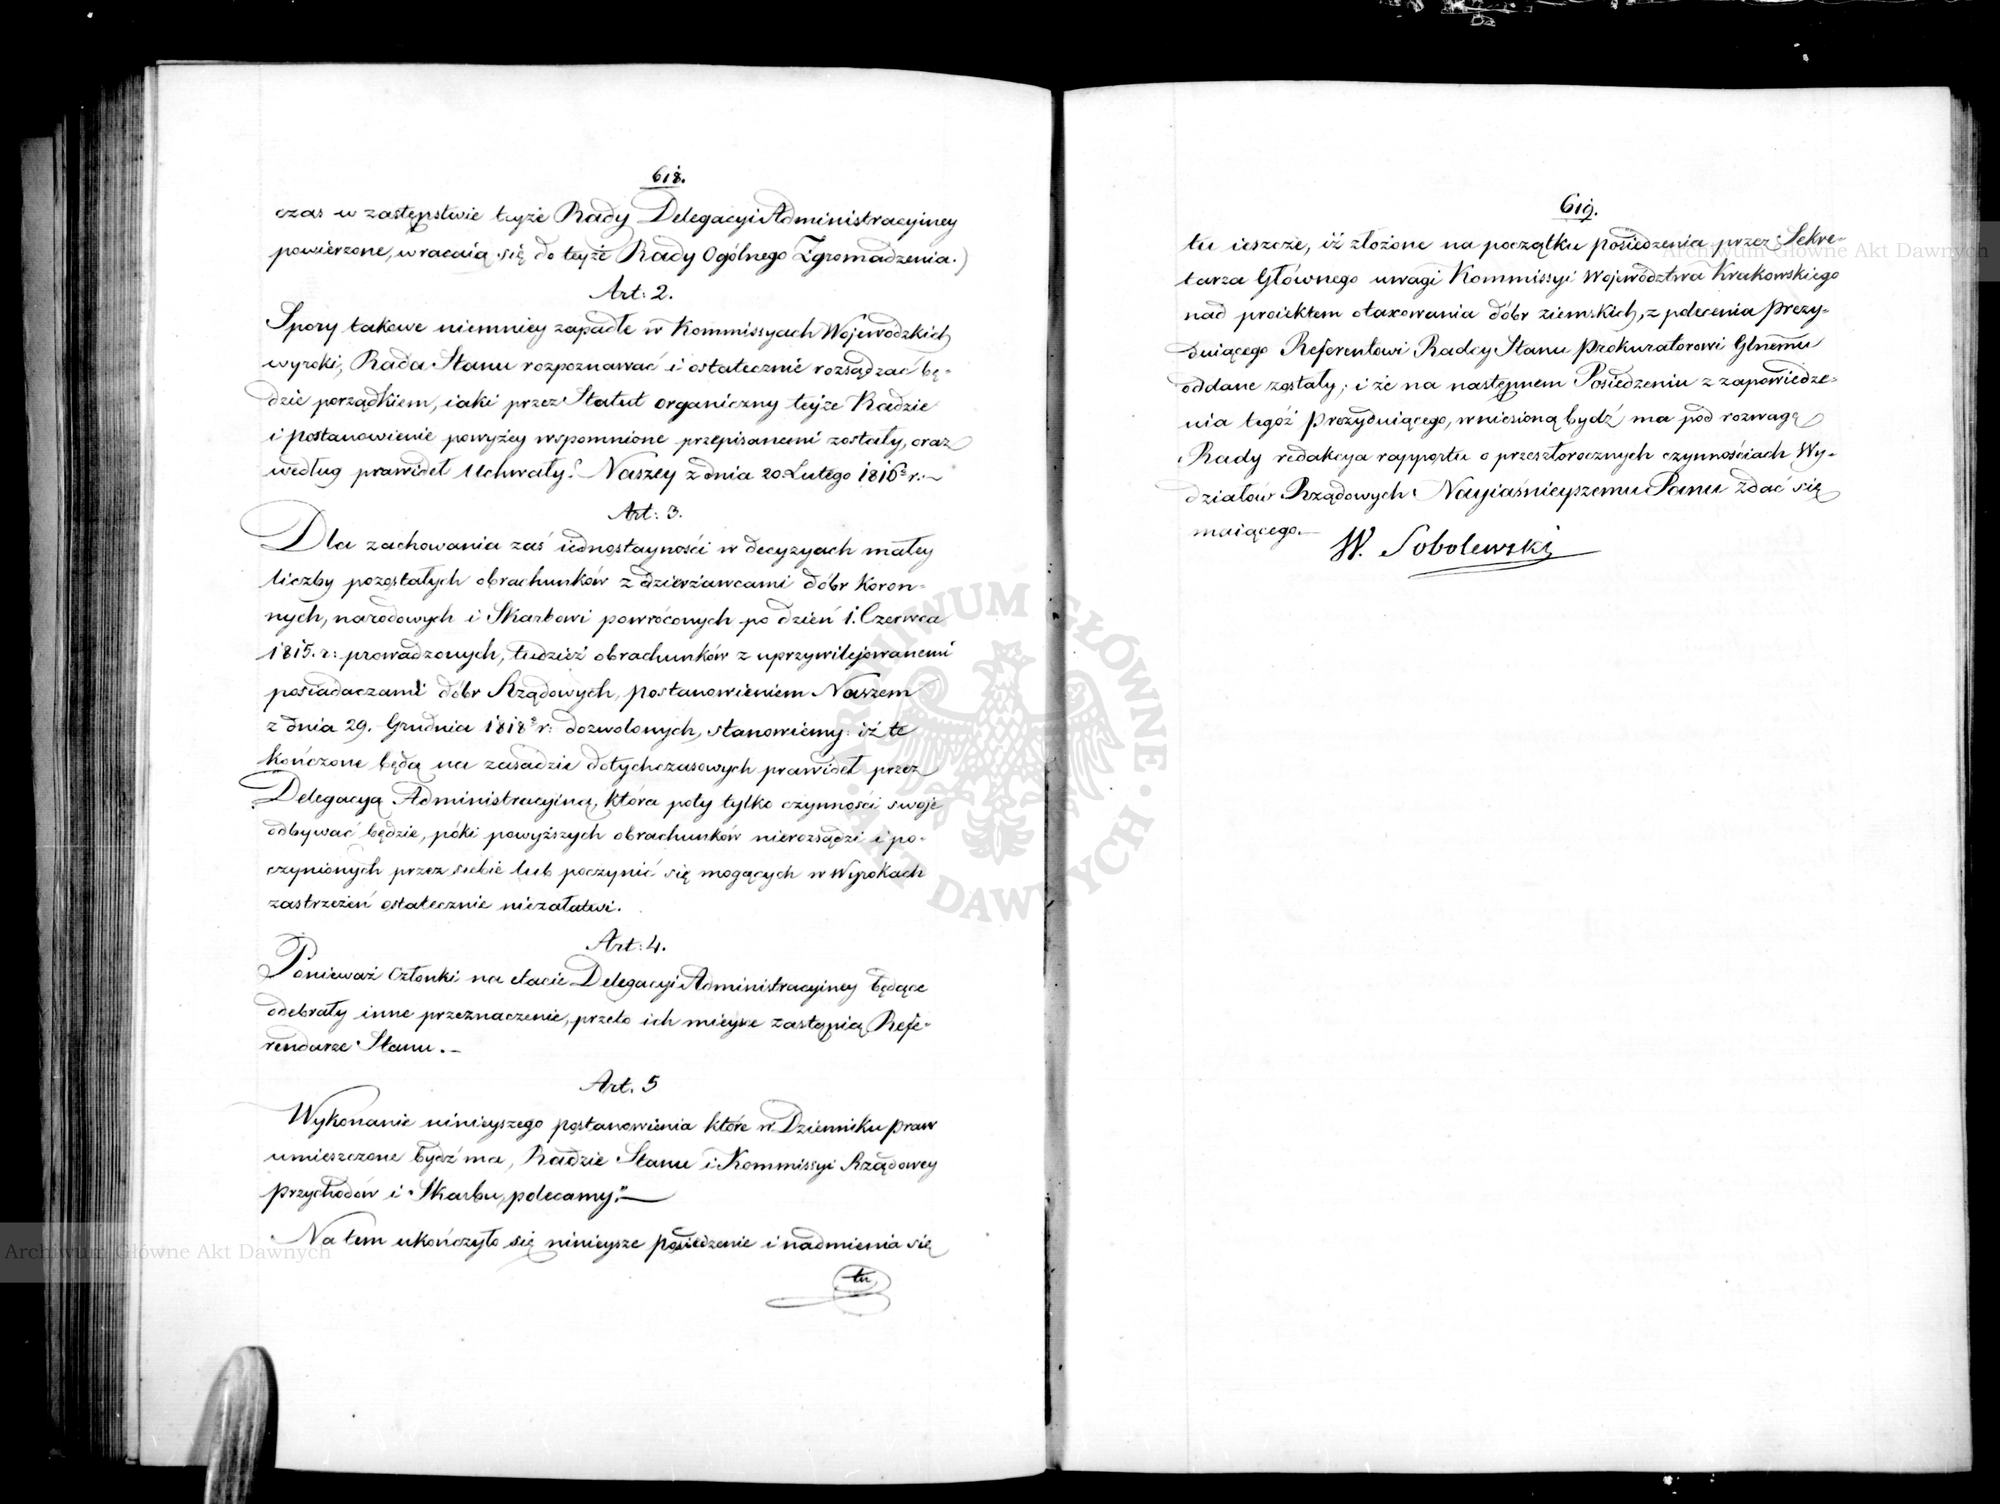 618.
czas w zastępstwie teyże Rady Delegacyi Administracyiney
powierzone, wracaią się do teyże Rady Ogólnego Zgromadzenia.)
Art: 2.
Spory takowe niemniey zapadłe w Kommissyach Wojewodzkich
wyroki, Rada Stanu rozpoznawać i ostatecznie rozsądzać bę-
dzie porządkiem, iaki przez Statut organiczny teyże Radzie
i postanowienie powyżey wspomnione przepisanemi zostały, oraz
według prawideł Uchwały Naszey z dnia 20. Lutego 1816 r:
Art: 3.
Dla zachowania zaś iednostayności w decyzyach małey
liczby pozostałych obrachunków z dzierżawcami dóbr Koron-
nych, narodowych i Skarbowi powróconych po dzień 1. Czerwca
1815. r: prowadzonych, tudzież obrachunków z uprzywilejowanemi
posiadaczami dóbr Rządowych, postanowieniem Naszem
z dnia 29. Grudnia 1818 r: dozwolonych, stanowiemy: iż te
kończone będą na zasadzie dotychczasowych prawideł przez
Delegacyą Administracyiną, która poty tylko czynności swoje
odbywać będzie, póki powyższych obrachunków nierozsądzi i po-
czynionych przez siebie lub poczynić się mogących w Wyrokach
zastrzeżeń ostatecznie niezałatwi.
Art: 4.
Ponieważ Członki na etacie Delegacyi Administracyiney będące
odebrały inne przeznaczenie, przeto ich mieysce zastąpią Refe-
rendarze Stanu.-
Art. 5
Wykonanie ninieyszego postanowienia które w Dzienniku praw
umieszczone bydź ma, Radzie Stanu i Kommissyi Rządowey
Przychodów i Skarbu, polecamy."—
Na tem ukończyło się ninieysze posiedzenie i nadmienia się
tu
619.
tu ieszcze, iż złożone na początku posiedzenia przez Sekre-
tarza Głównego uwagi Kommissyi Województwa Krakowskiego
nad proiektem otaxowania dóbr ziemskich, z polecenia Prezy-
duiącego Referentowi Radcy Stanu Prokuratorowi Glnemu
oddane zostały; i że na następnem Posiedzeniu z zapowiedze-
nia tegóż Prezyduiącego, wniesioną bydź ma pod rozwagę
Rady redakcya rapportu o przeszłorocznych czynnościach Wy-
działów Rządowych Nayiaśnieyszemu Panu zdać się
maiącego.—
W. Sobolewski
Archiwum Główne Akt Dawnych
Archiwum Główne Akt Dawnych
ARCHIWUM GŁÓWNE AKT DAWNYCH